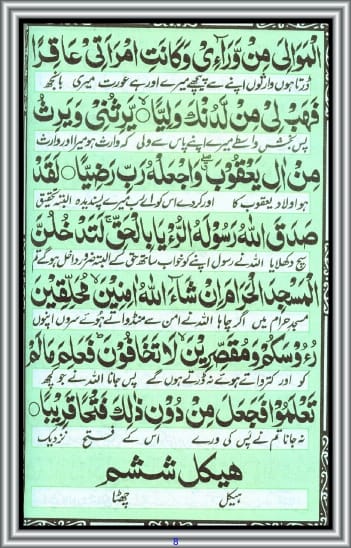 الْمَوَالِىَ مِنْ وَّرَآءِىْ وَكَانَتِ امْرَاَتِىْ عَاقِرًا
ڈرتا ہوں وارثوں اپنے سے پیچھے میرے اور ہے عورت میری بانجھ
فَهَبْ لِىْ مِنْ لَّدُنْكَ وَلِيًّا ۙ يَّرِثُنِىْ وَيَرِثُ
پس بخش واسطے میرے اپنے پاس سے ولی کہ وارث ہو میرا اور وارث
مِنْ اٰلِ يَعْقُوْبَ ۖ وَاجْعَلْهُ رَبِّ رَضِيًّا ۞ لَقَدْ
ہو اولاد یعقوب کا اور کر دے اس کو اے رب میرے پسندیدہ البتہ تحقیق
صَدَقَ اللّٰهُ رَسُوْلَهُ الرُّءْيَا بِالْحَقِّ ۚ لَتَدْخُلُنَّ
سچ دکھلایا اللہ نے رسول اپنے کو خواب ساتھ حق کے البتہ ضرور داخل ہو گے تم
الْمَسْجِدَ الْحَرَامَ اِنْ شَآءَ اللّٰهُ اٰمِنِيْنَ ۙ مُحَلِّقِيْنَ
مسجد حرام میں اگر چاہا اللہ نے امن سے منڈواتے ہوئے سروں اپنوں
رُءُوْسَكُمْ وَمُقَصِّرِيْنَ ۙ لَا تَخَافُوْنَ ؕ فَعَلِمَ مَا لَمْ
کو اور کترواتے ہوئے نہ ڈرتے ہوں گے پس جانا اللہ نے جو کچھ
تَعْلَمُوْا فَجَعَلَ مِنْ دُوْنِ ذٰلِكَ فَتْحًا قَرِيْبًا ۞
نہ جانا تم نے پس کی ورے اس کے فتح نزدیک
هيكل ششم
ہیکل چھٹا
8